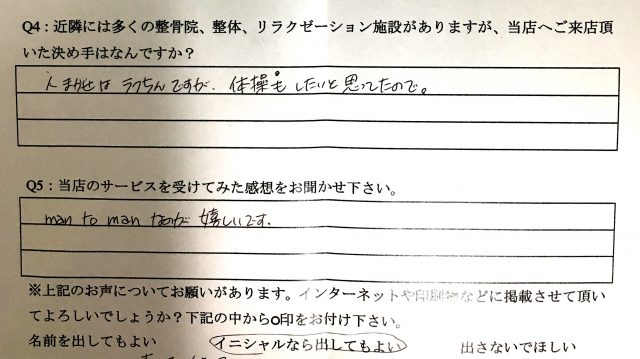 Q4：近隣には多くの整骨院、整体、リラクゼーション施設がありますが、当店へご来店頂
いた決め手はなんですか？
人まかせは ラクちんですが、体操もしたいと思ってたので。
Q5：当店のサービスを受けてみた感想をお聞かせ下さい。
man to man なのが 嬉しいです.
※上記のお声についてお願いがあります。インターネットや印刷物などに掲載させて頂い
てよろしいでしょうか？下記の中から○印をお付け下さい。
名前を出してもよい イニシャルなら出してもよい 出さないでほしい